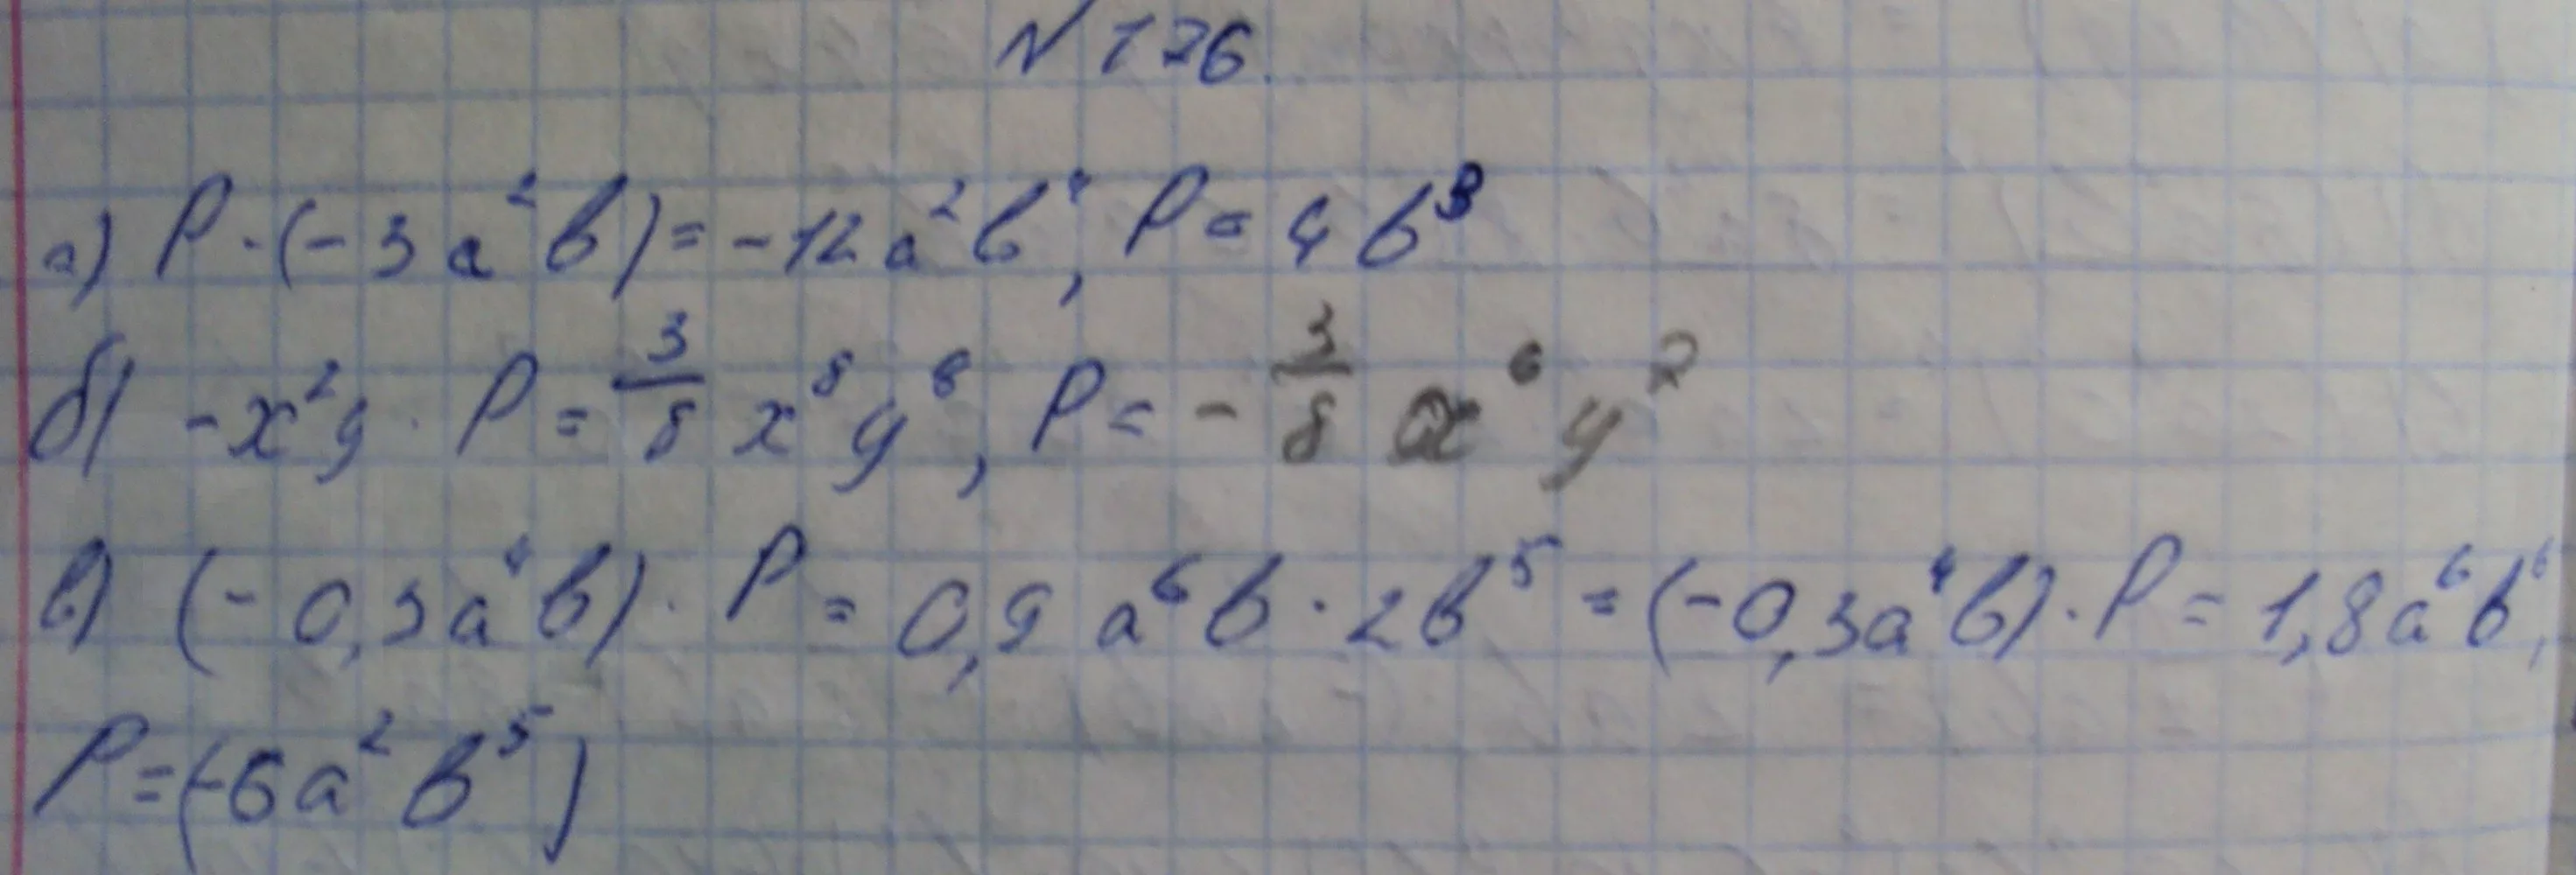 N 176.
а) P · (-3a²b) = -12a²b⁴, P = 4b³
б) -x²y · P = 3/8 x⁸y⁸, P = - 3/8 x⁶y⁷
в) (-0,3a⁴b) · P = 0,9a⁶b · 2b⁵ = (-0,3a⁴b) · P = 1,8a⁶b⁶,
P = (-6a²b⁵)